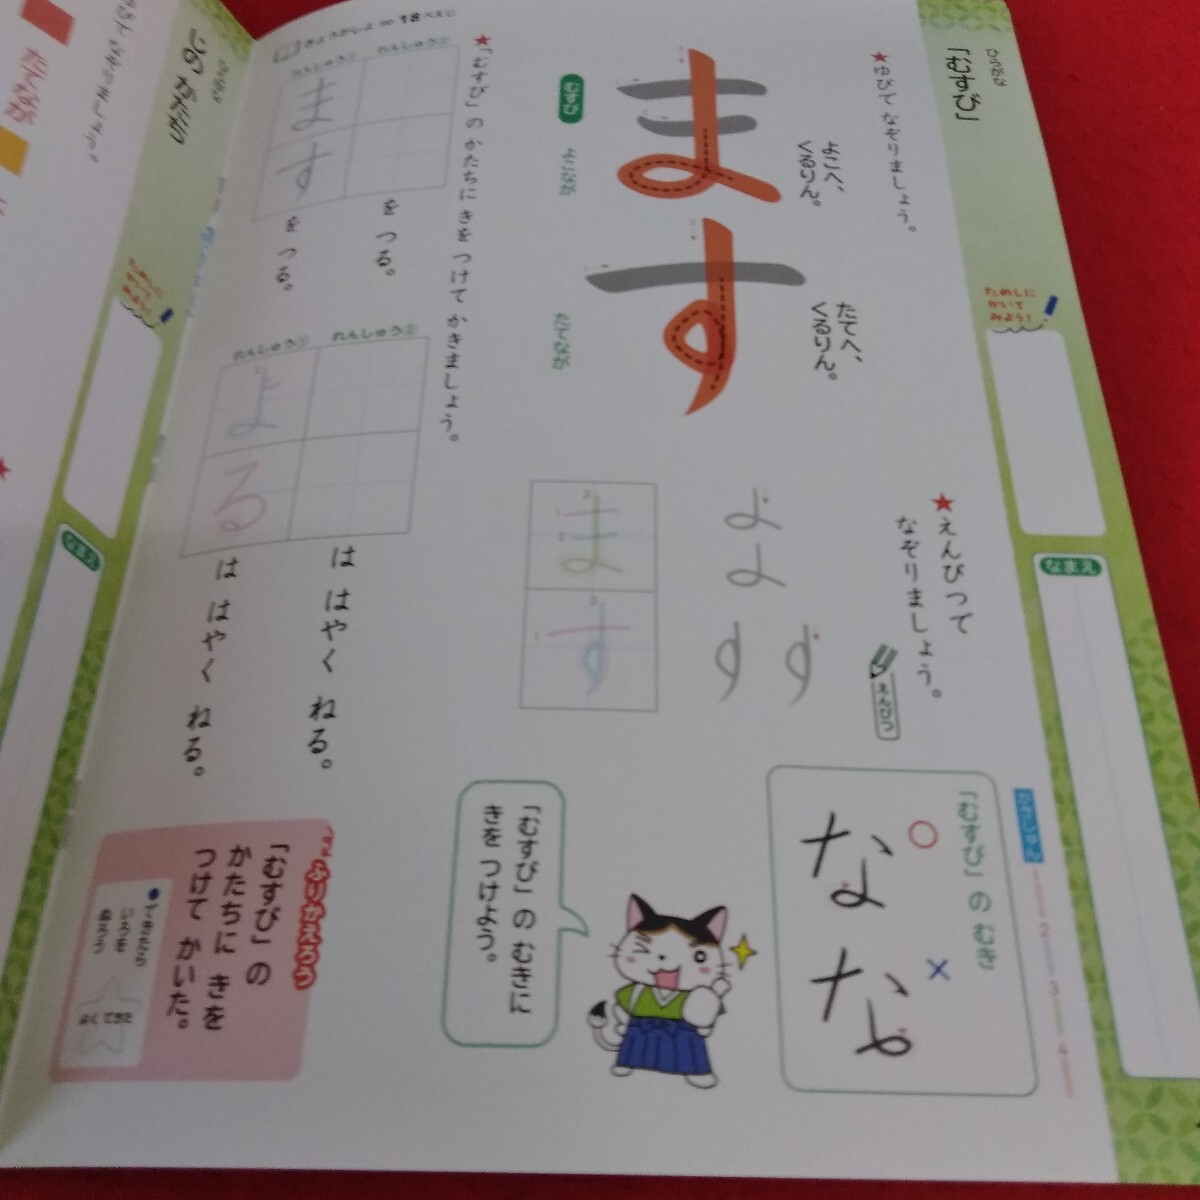 ひらがな
「むすび」
ためしに
かいて
みよう！
なまえ
★ゆびで なぞりましょう。
よこへ、
くるりん。
ま
たてへ、
くるりん。
す
むすび
よこなが
たてなが
★えんぴつで
なぞりましょう。
えんぴつ
よ よ
す す
ま
す
かきじゅん 1 2 3 4
「むすび」の むき
○ な
× な
「むすび」の むきに
きを つけよう。
★「むすび」の かたちに きを つけて かきましょう。
きょうかしょ
18ページ
れんしゅう②
をつる。
れんしゅう①
ます
をつる。
れんしゅう②
は はやく ねる。
れんしゅう①
よる
は はやく ねる。
ふりかえろう
「むすび」の
かたちに きを
つけて かいた。
●できたら
いろを
ぬろう
よく できた
なまえ
ためしに
かいて
みよう！
たてなが